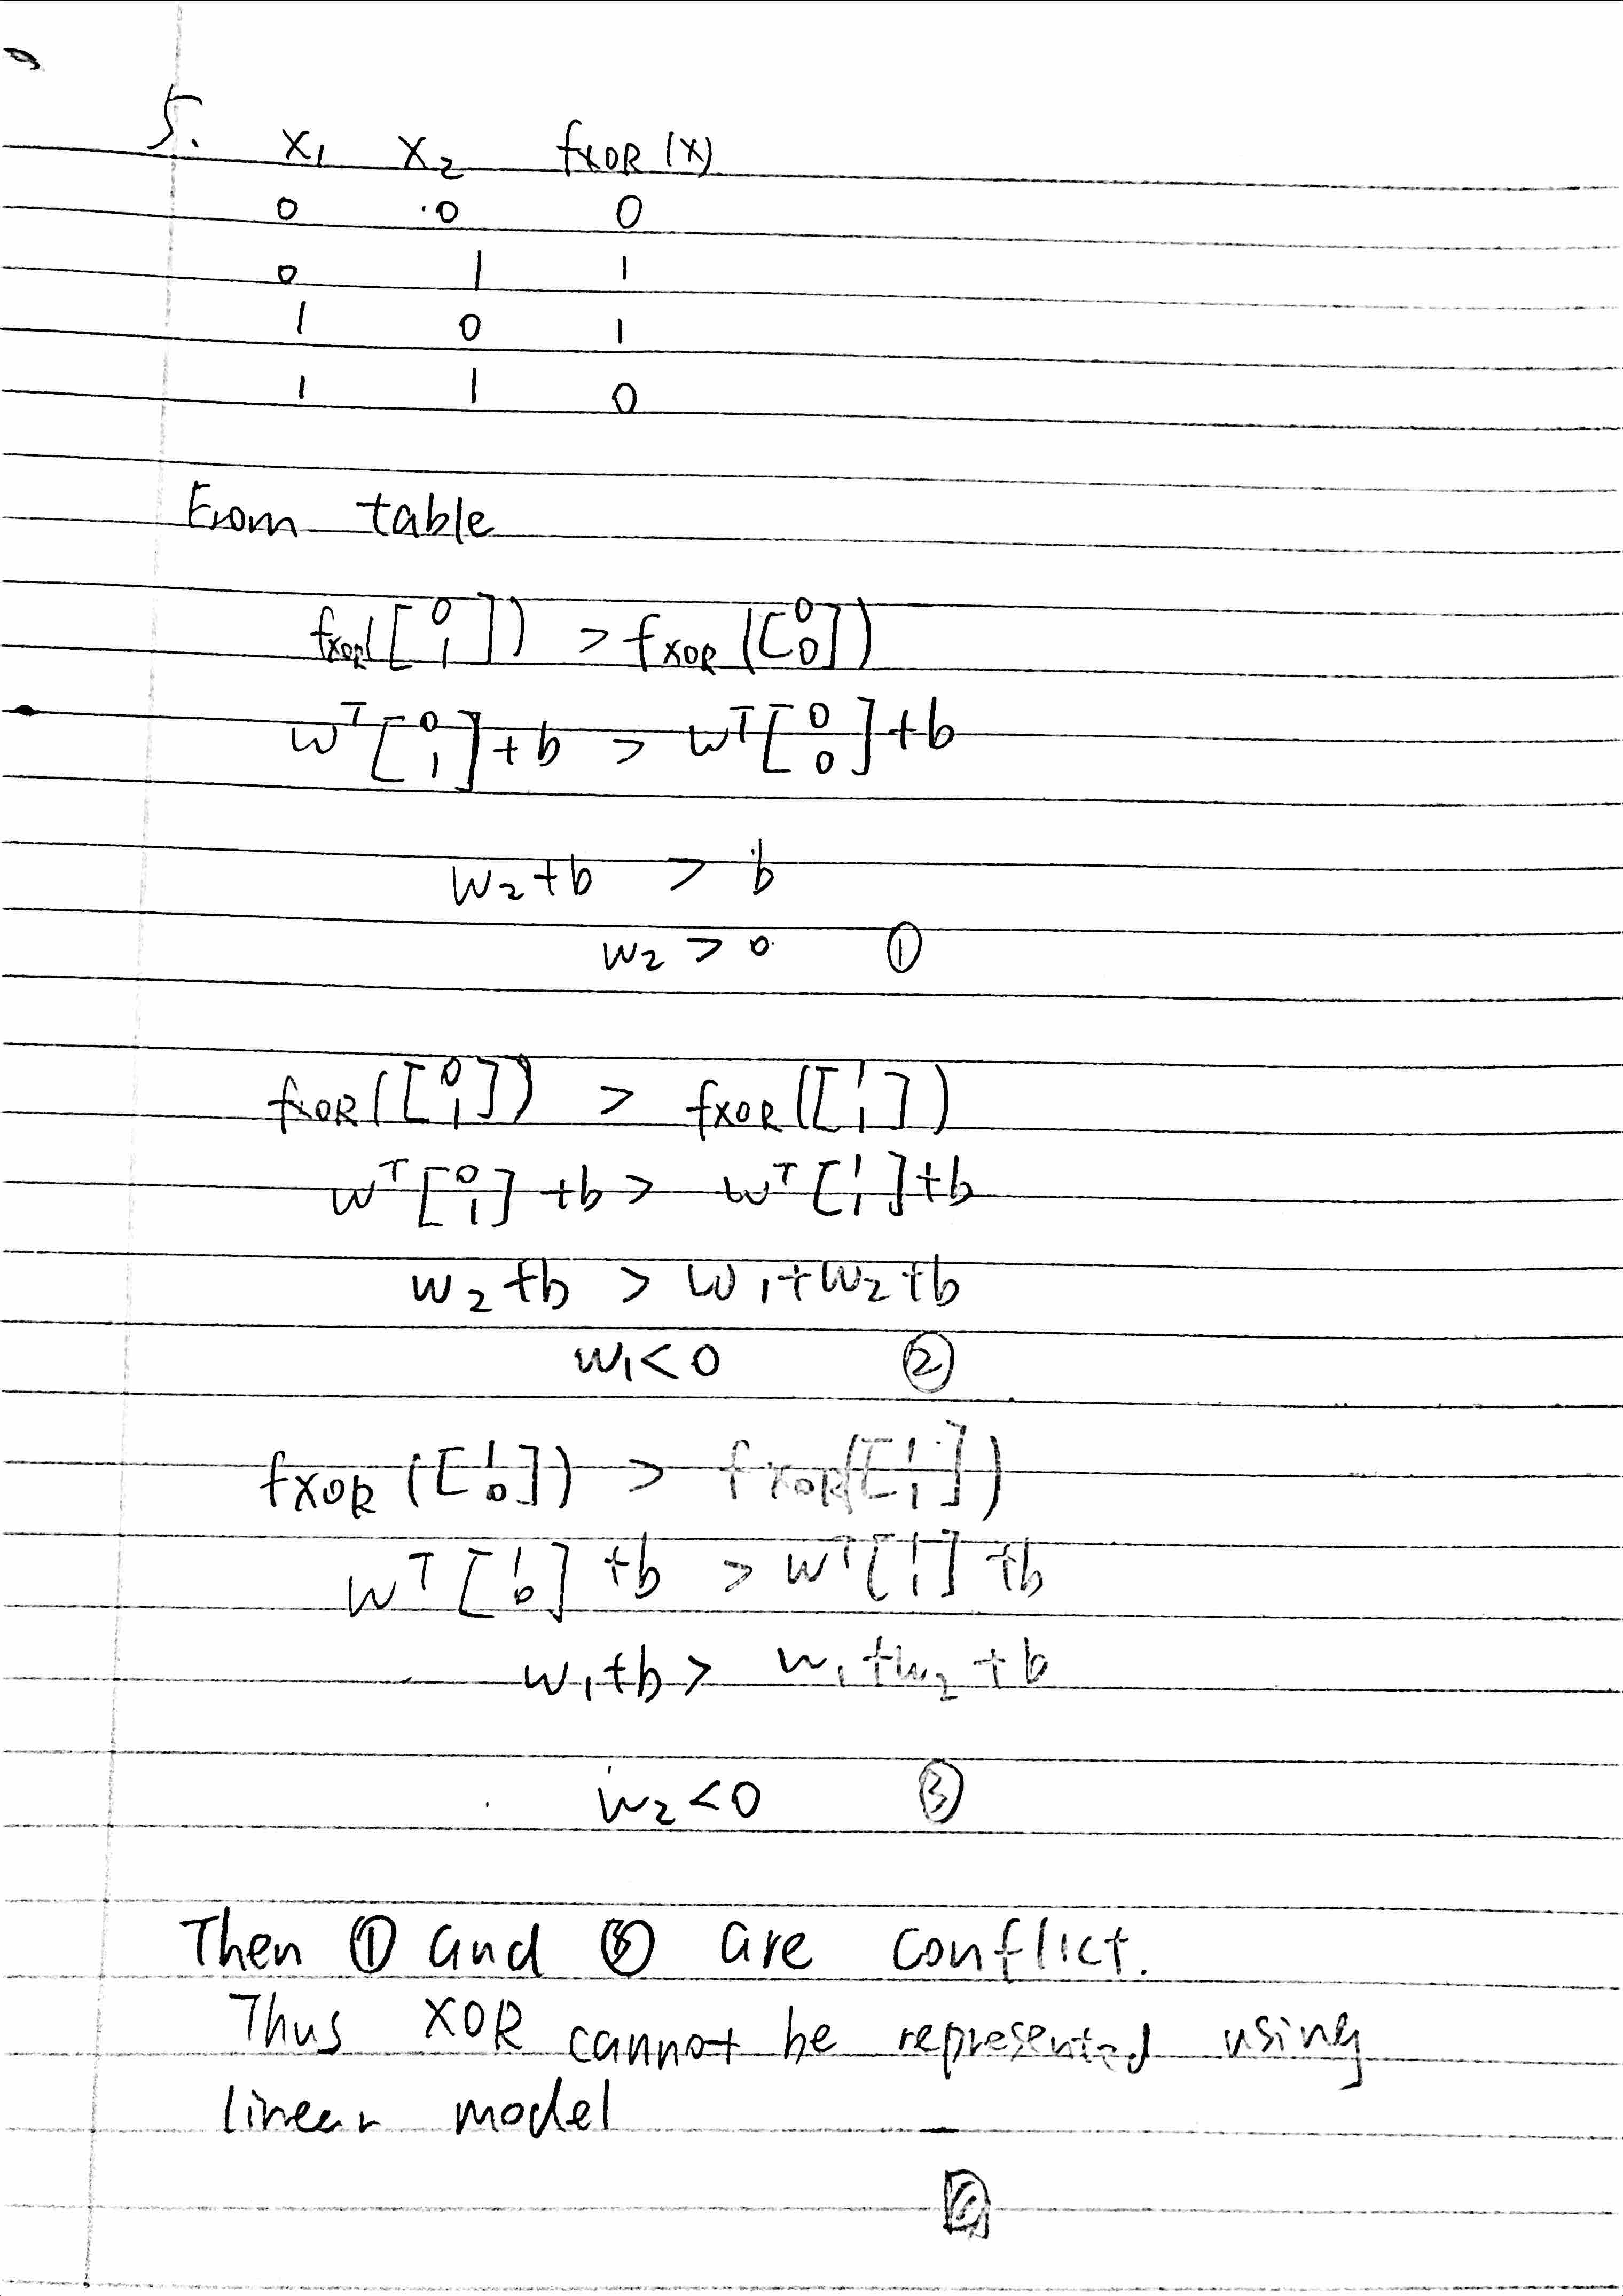 5. x₁ x₂ fXOR(x)
0 0 0
0 1 1
1 0 1
1 1 0
From table
fXOR([0 1]) > fXOR([0 0])
wᵀ[0 1]+b > wᵀ[0 0]+b
w₂+b > b
w₂ > 0 ①
fXOR([0 1]) > fXOR([1 1])
wᵀ[0 1]+b > wᵀ[1 1]+b
w₂+b > w₁+w₂+b
w₁<0 ②
fXOR([1 0]) > fXOR([1 1])
wᵀ[1 0]+b > wᵀ[1 1]+b
w₁+b > w₁+w₂+b
w₂<0 ③
Then ① and ③ are conflict.
Thus XOR cannot be represented using
linear model